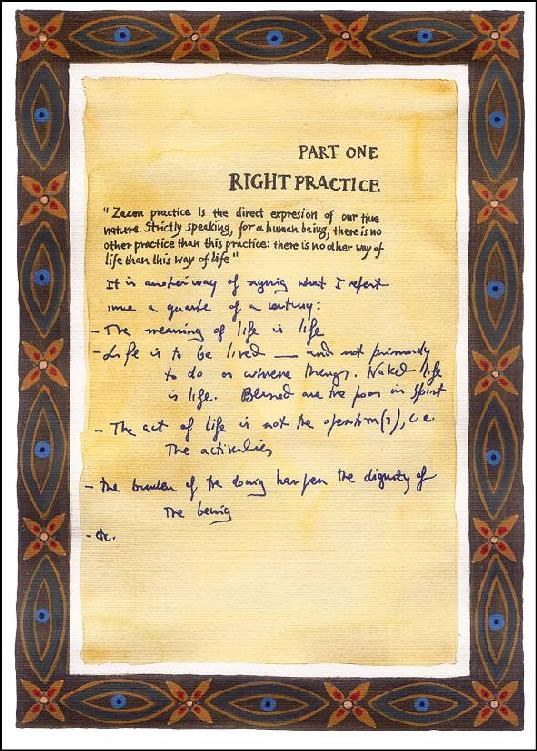 PART ONE
RIGHT PRACTICE
"Zazen practice is the direct expresion of our true
nature. Strictly speaking, for a human being, there is no
other practice than this practice: there is no other way of
life than this way of life"
It is another way of saying what I repeat
since a quarter of a century:
- The meaning of life is life
- Life is to be lived — and not primarily
to do or achieve things. Naked life
is life. Blessed are the poor in Spirit
- The act of life is not the operation(s), i.e.
The activities
- the burden of the doing the dignity of
the being
- etc.